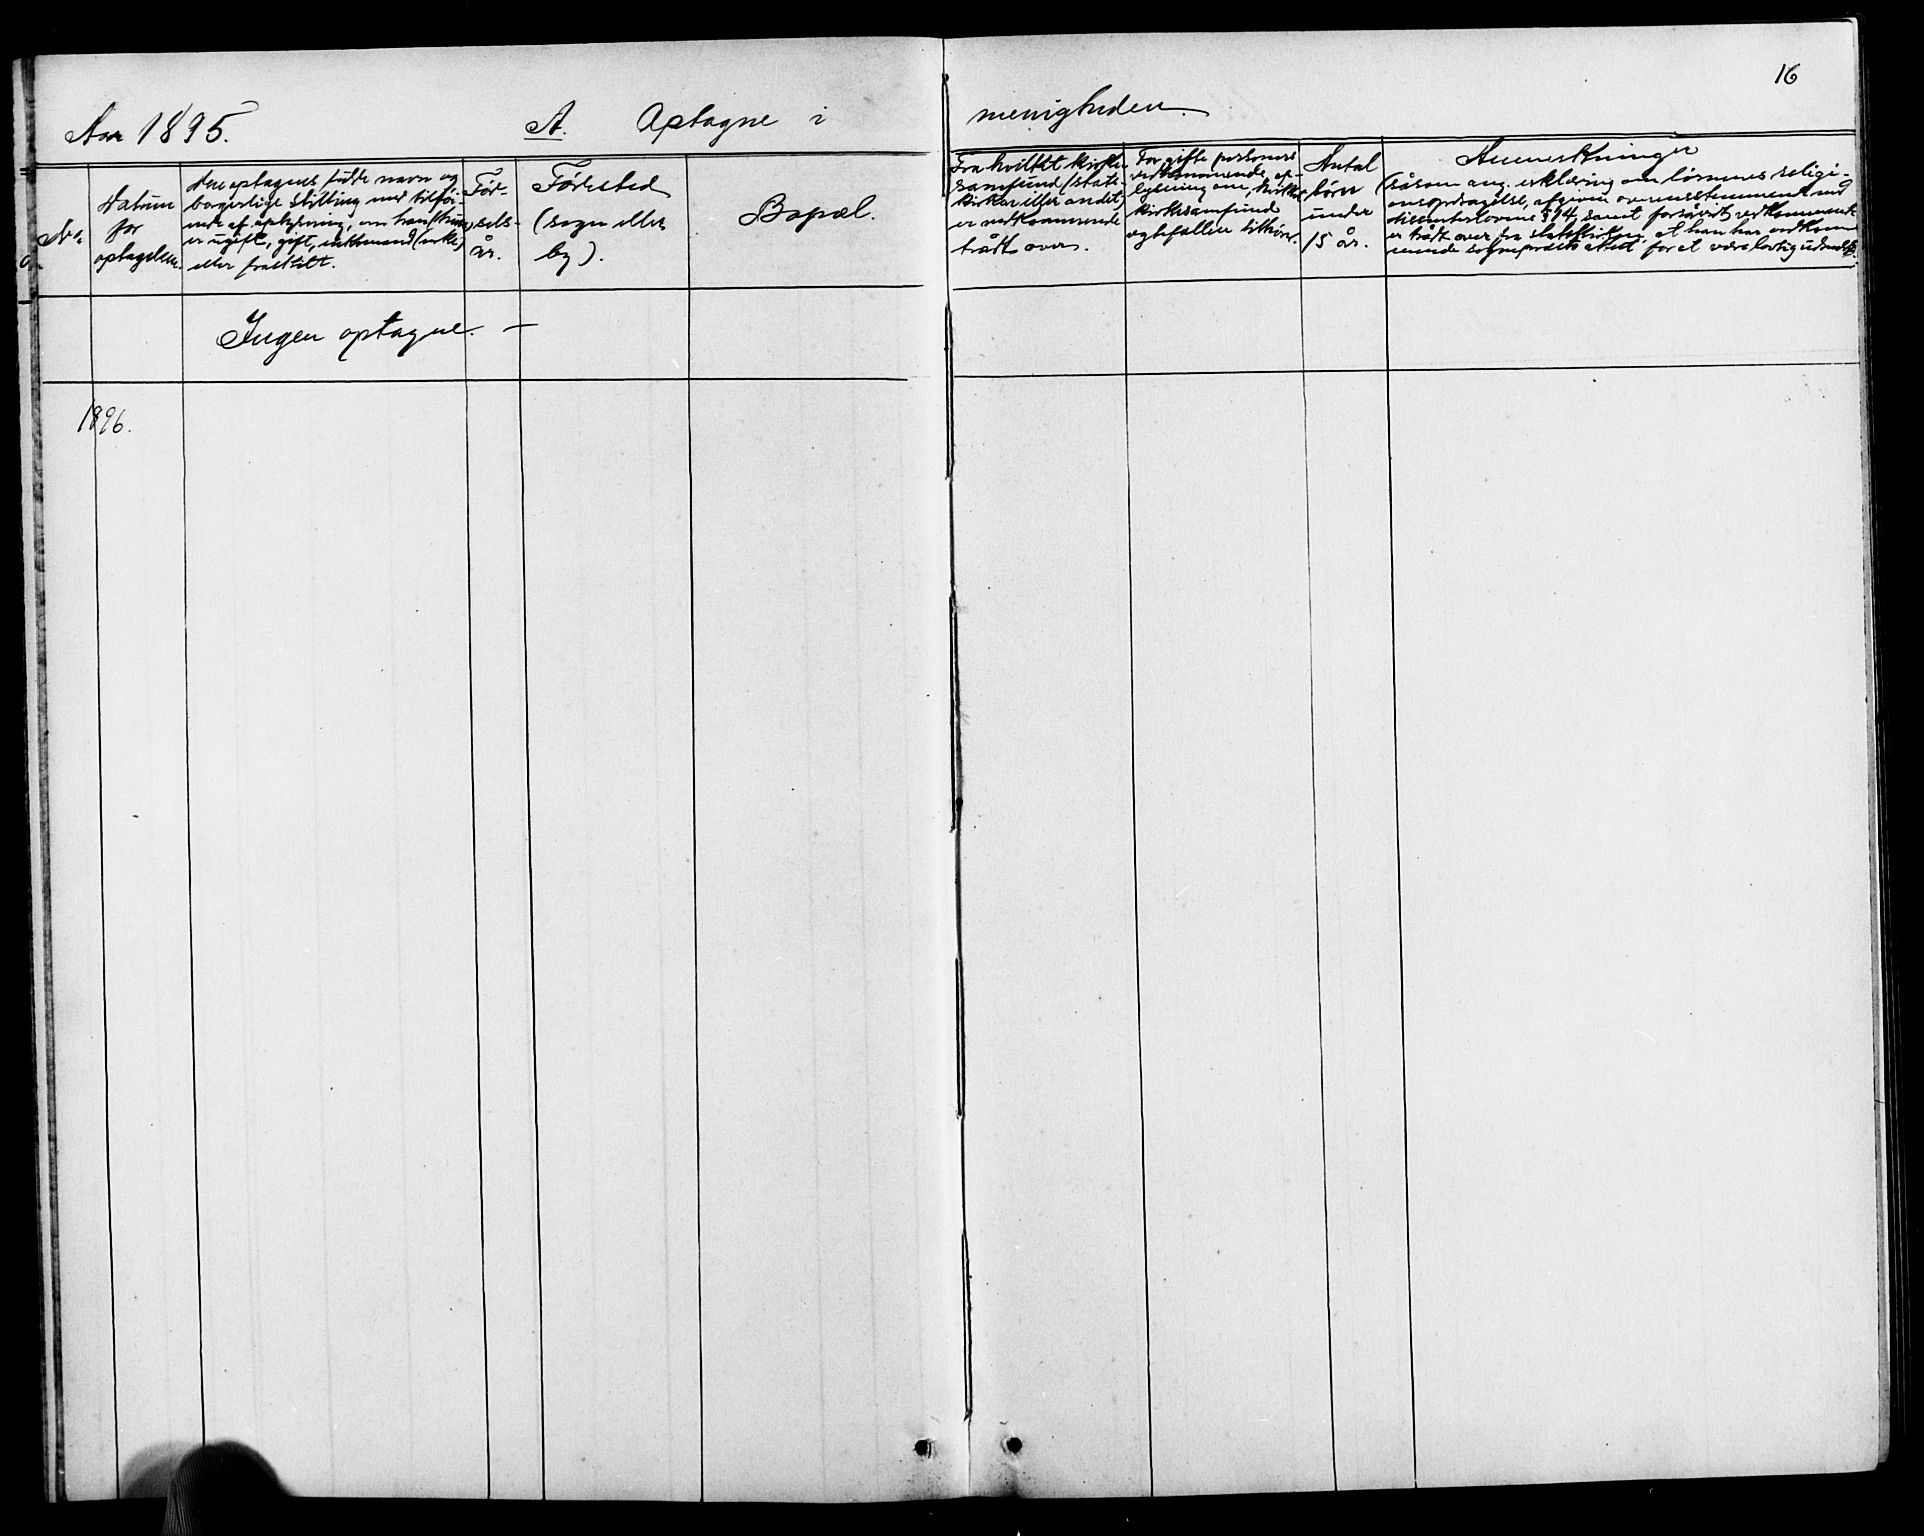 16
Aar 1895. A. Optagne i menigheden.
No.
Datum
for
optagelsen.
Den optagnes fulde navn og
borgerlige stilling med tilföi-
ende af oplysning, om han (hun)
er ugift, gift, enkemand (enke)
eller fraskilt.
Föd-
sels-
år.
Födested
(sogn eller
by).
Bopæl.
Fra hvilket kirke-
samfund (stats-
kirken eller andet)
er vedkommende
trådt over.
For gifte personers
vedkommende, op-
lysning om, hvilket
kirkesamfund
ægtefællen tilhörer.
Antal
börn
under
15 år.
Anmerkninger
(såsom ang. erklæring om börnenes religi-
onsopdragelse, afgiven overensstemmende med
dissenterlovens § 14, samt forsåvidt vedkommende
er trådt over fra statskirken, at han har vedkom-
mende sogneprests attest for at være lovlig udmeldt).
Ingen optagne. —
1896.